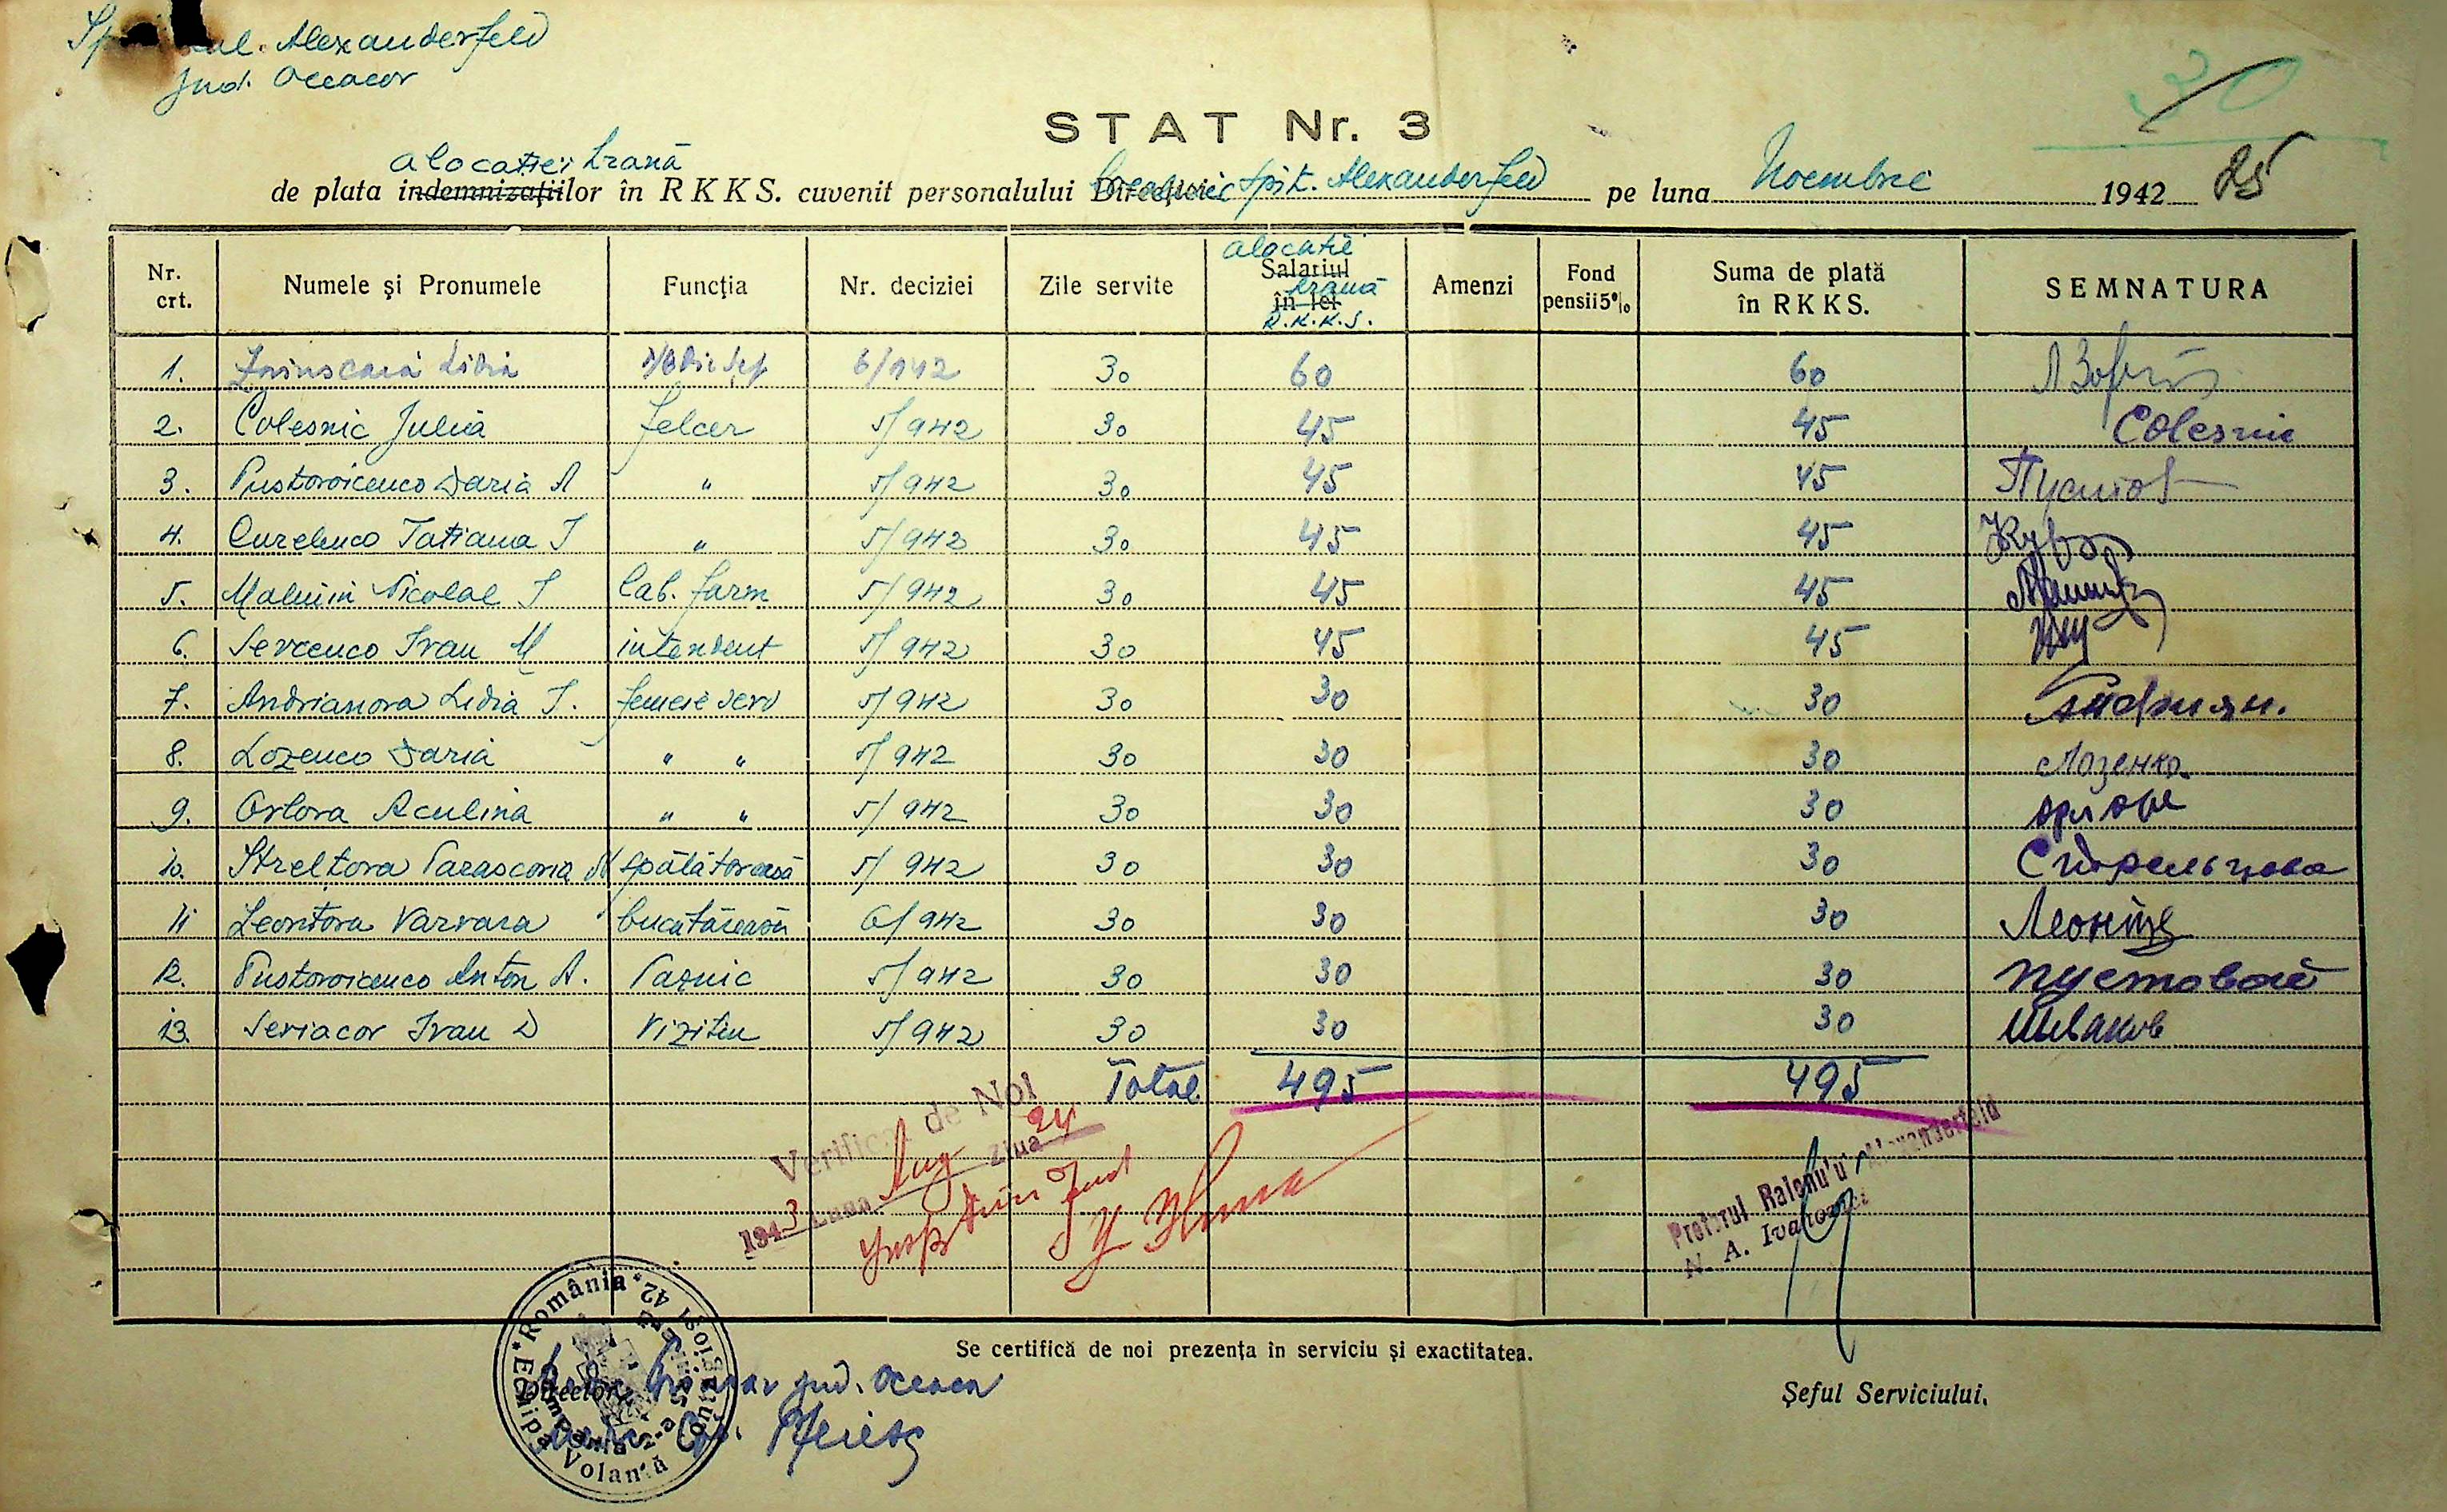 Alexanderfeld
Jud. Oceacov
30
STAT Nr. 3
25
alocației hrană
de plata indemnizațiilor în R K K S. cuvenit personalului Direcției Spit. Alexanderfeld pe luna Noembrie 1942
Nr. crt. Numele și Pronumele Funcția Nr. deciziei Zile servite alocație Salariul hrană în lei R.K.K.S. Amenzi Fond pensii 5% Suma de plată în R K K S. SEMNATURA
1. Lidia 6/942 30 60 60
2. Colesnic Julia felcer 5/942 30 45 45 Colesnic
3. Pustovoicenco Daria A " 5/942 30 45 45
4. Curelenco Tatiana I " 5/942 30 45 45
5. Malinin Nicolae I Lab. farm 5/942 30 45 45
6. Sevcenco Ivan M intendent 5/942 30 45 45
7. Andrianova Lidia I. femeie serv 5/942 30 30 30 Андриян.
8. Lozenco Daria " " 5/942 30 30 30 Лозенко
9. Orlova Aculina " " 5/942 30 30 30 Орлова
10. Streltova Parascovia M spălătoreasă 5/942 30 30 30 Стрельцова
11 Leontova Varvara bucătăreasă 6/942 30 30 30
12. Pustovoicenco Anton A. Paznic 5/942 30 30 30 Пустовой
13. Seviacov Ivan D Vizitiu 5/942 30 30 30
Total 495 495
Verificat de Noi
1943 Luna Aug Ziua 24
Pretorul Raionului Alexanderfeld
N. A. Ivanovici
Se certifică de noi prezența în serviciu și exactitatea.
România
Echipa Volantă
42
Director,
jud. Oceacov
Șeful Serviciului,